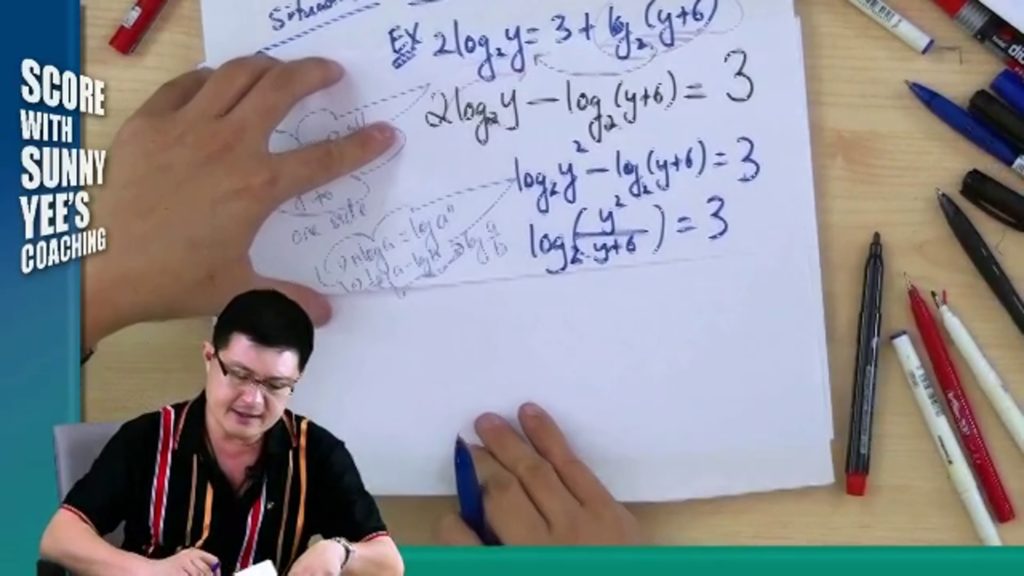 SCORE
WITH
SUNNY
YEE'S
COACHING
EX 2log₂y = 3 + log₂(y+6)
2log₂y − log₂(y+6) = 3
log₂y² − log₂(y+6) = 3
log₂(y²/y+6) = 3
to
one side
nloga = logaⁿ